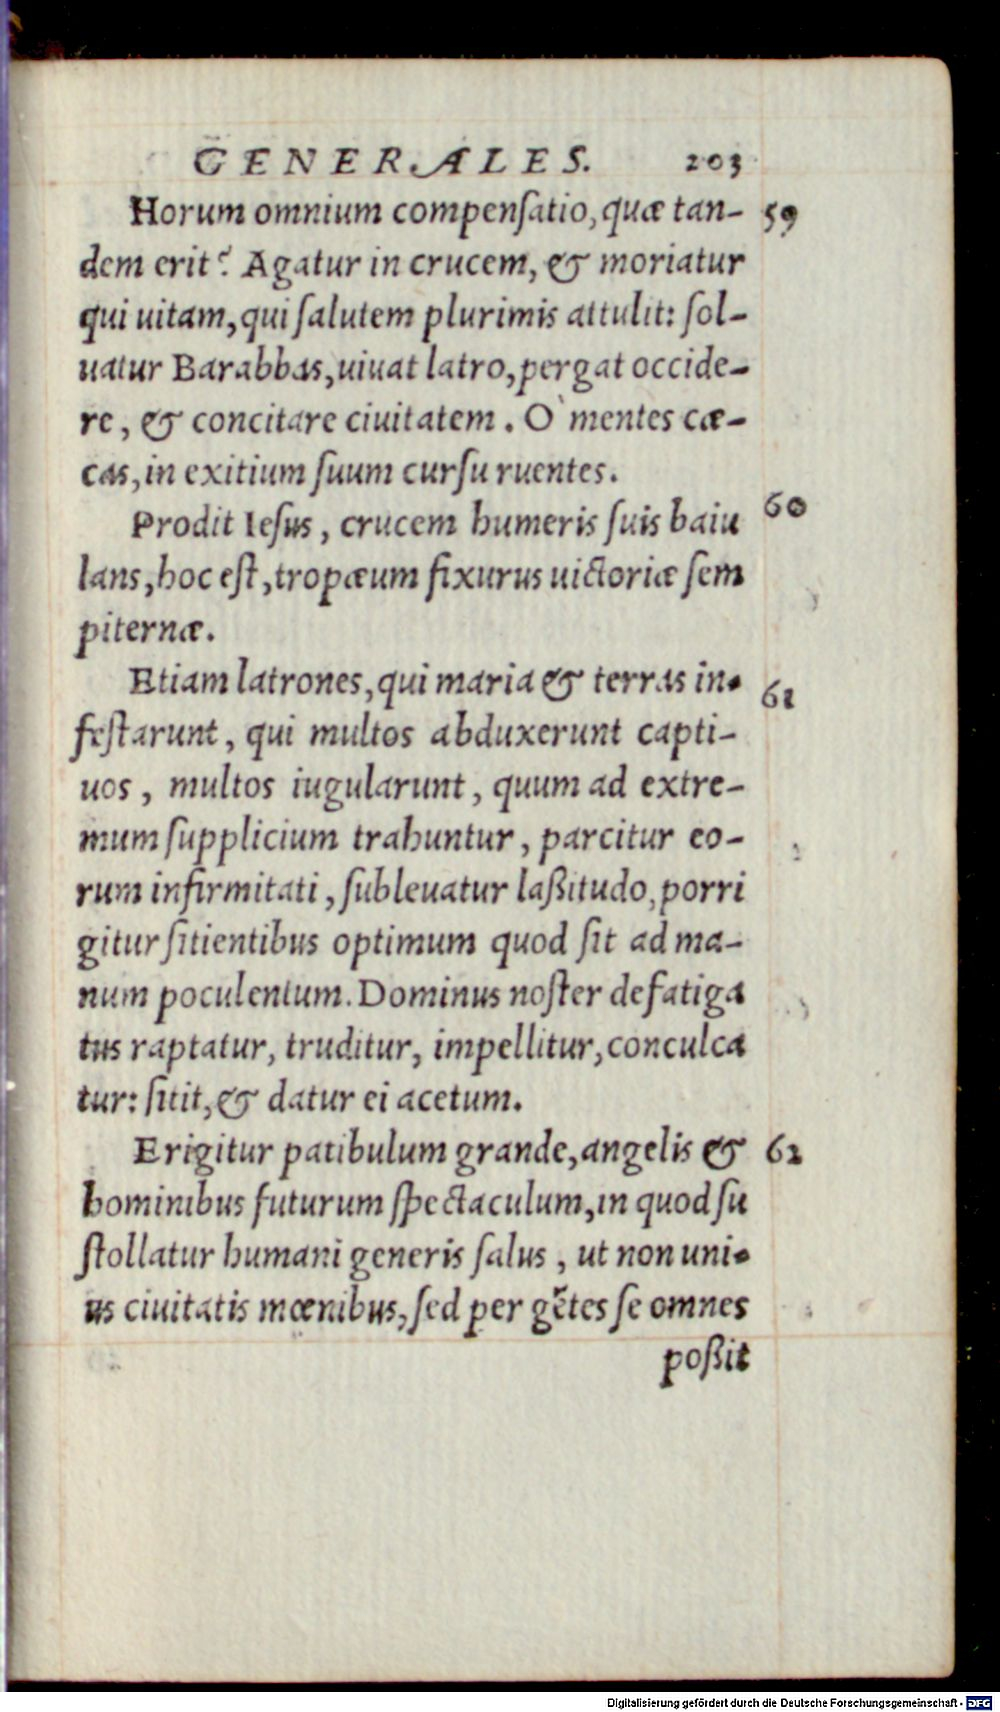 GENERALES. 203
Horum omnium compenſatio, quæ tan- 59
dem erit? Agatur in crucem, & moriatur
qui uitam, qui ſalutem plurimis attulit: ſol-
uatur Barabbas, uiuat latro, pergat occide-
re, & concitare ciuitatem. O` mentes cæ-
cas, in exitium ſuum curſu ruentes.
Prodit Ieſus, crucem humeris ſuis baiu 60
lans, hoc eſt, tropæum fixurus uictoriæ ſem
piternæ.
Etiam latrones, qui maria & terras in- 61
feſtarunt, qui multos abduxerunt capti-
uos, multos iugularunt, quum ad extre-
mum ſupplicium trahuntur, parcitur eo-
rum infirmitati, ſubleuatur laßitudo, porri
gitur ſitientibus optimum quod ſit ad ma-
num poculentum. Dominus noſter defatiga
tus raptatur, truditur, impellitur, conculca
tur: ſitit, & datur ei acetum.
Erigitur patibulum grande, angelis & 62
hominibus futurum ſpectaculum, in quod ſu
ſtollatur humani generis ſalus, ut non uni-
us ciuitatis mœnibus, ſed per gẽtes ſe omnes
poßit
Digitalisierung gefördert durch die Deutsche Forschungsgemeinschaft - DFG